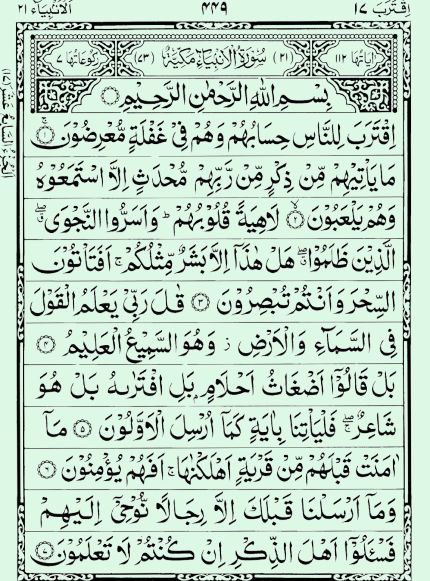 اِقْتَرَبَ ١٧ ٤٤٩ اَلْاَنْۢبِيَاء ٢١
اٰيَاتُهَا ١١٢ (٢١) سُوْرَةُ الْاَنْۢبِيَآءِ مَكِّيَّةٌ (٧٣) رُكُوْعَاتُهَا ٧
بِسْمِ اللّٰهِ الرَّحْمٰنِ الرَّحِيْمِ
اِقْتَرَبَ لِلنَّاسِ حِسَابُهُمْ وَهُمْ فِيْ غَفْلَةٍ مُّعْرِضُوْنَ ۝١
مَا يَاْتِيْهِمْ مِّنْ ذِكْرٍ مِّنْ رَّبِّهِمْ مُّحْدَثٍ اِلَّا اسْتَمَعُوْهُ
وَهُمْ يَلْعَبُوْنَ ۝٢ لَاهِيَةً قُلُوْبُهُمْ ؕ وَاَسَرُّوا النَّجْوَى
الَّذِيْنَ ظَلَمُوْا هَلْ هٰذَآ اِلَّا بَشَرٌ مِّثْلُكُمْ ۚ اَفَتَاْتُوْنَ
السِّحْرَ وَاَنْتُمْ تُبْصِرُوْنَ ۝٣ قٰلَ رَبِّيْ يَعْلَمُ الْقَوْلَ
فِي السَّمَآءِ وَالْاَرْضِ ز وَهُوَ السَّمِيْعُ الْعَلِيْمُ ۝٤
بَلْ قَالُوْٓا اَضْغَاثُ اَحْلَامٍۭ بَلِ افْتَرٰىهُ بَلْ هُوَ
شَاعِرٌ ۖۚ فَلْيَاْتِنَا بِاٰيَةٍ كَمَآ اُرْسِلَ الْاَوَّلُوْنَ ۝٥ مَآ
اٰمَنَتْ قَبْلَهُمْ مِّنْ قَرْيَةٍ اَهْلَكْنٰهَا ۚ اَفَهُمْ يُؤْمِنُوْنَ ۝٦
وَمَآ اَرْسَلْنَا قَبْلَكَ اِلَّا رِجَالًا نُّوْحِيْٓ اِلَيْهِمْ
فَسْـَٔلُوْٓا اَهْلَ الذِّكْرِ اِنْ كُنْتُمْ لَا تَعْلَمُوْنَ ۝٧
اَلْجُزْءُ السَّابِعُ عَشَرَ (١٧)